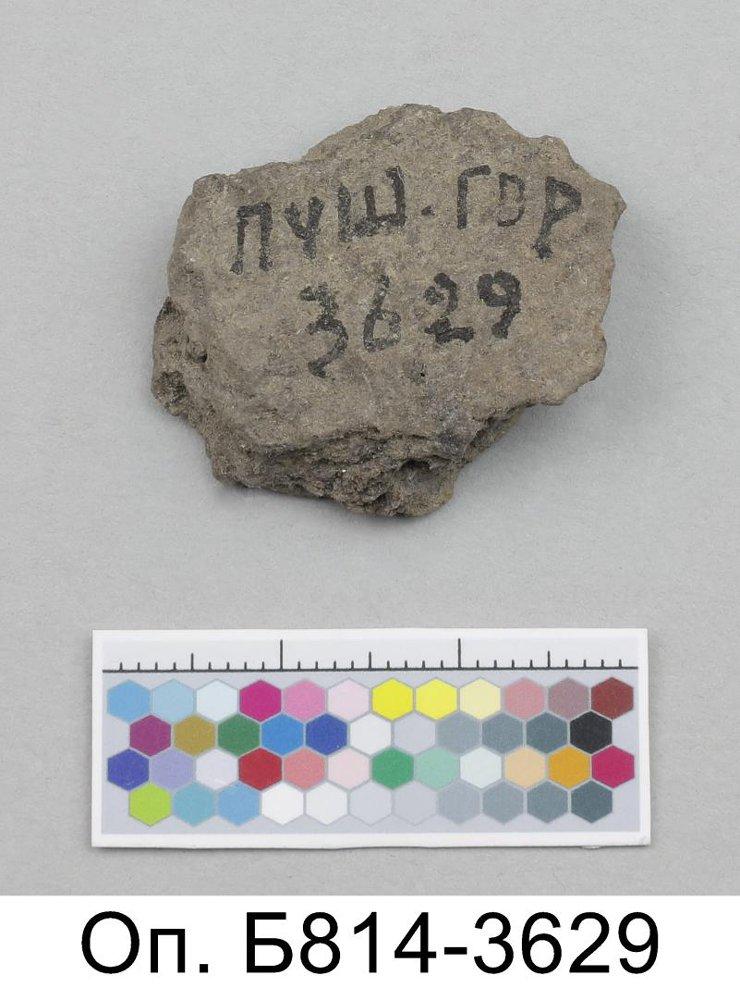 ПУШ. ГОР
3629
Оп. Б814-3629